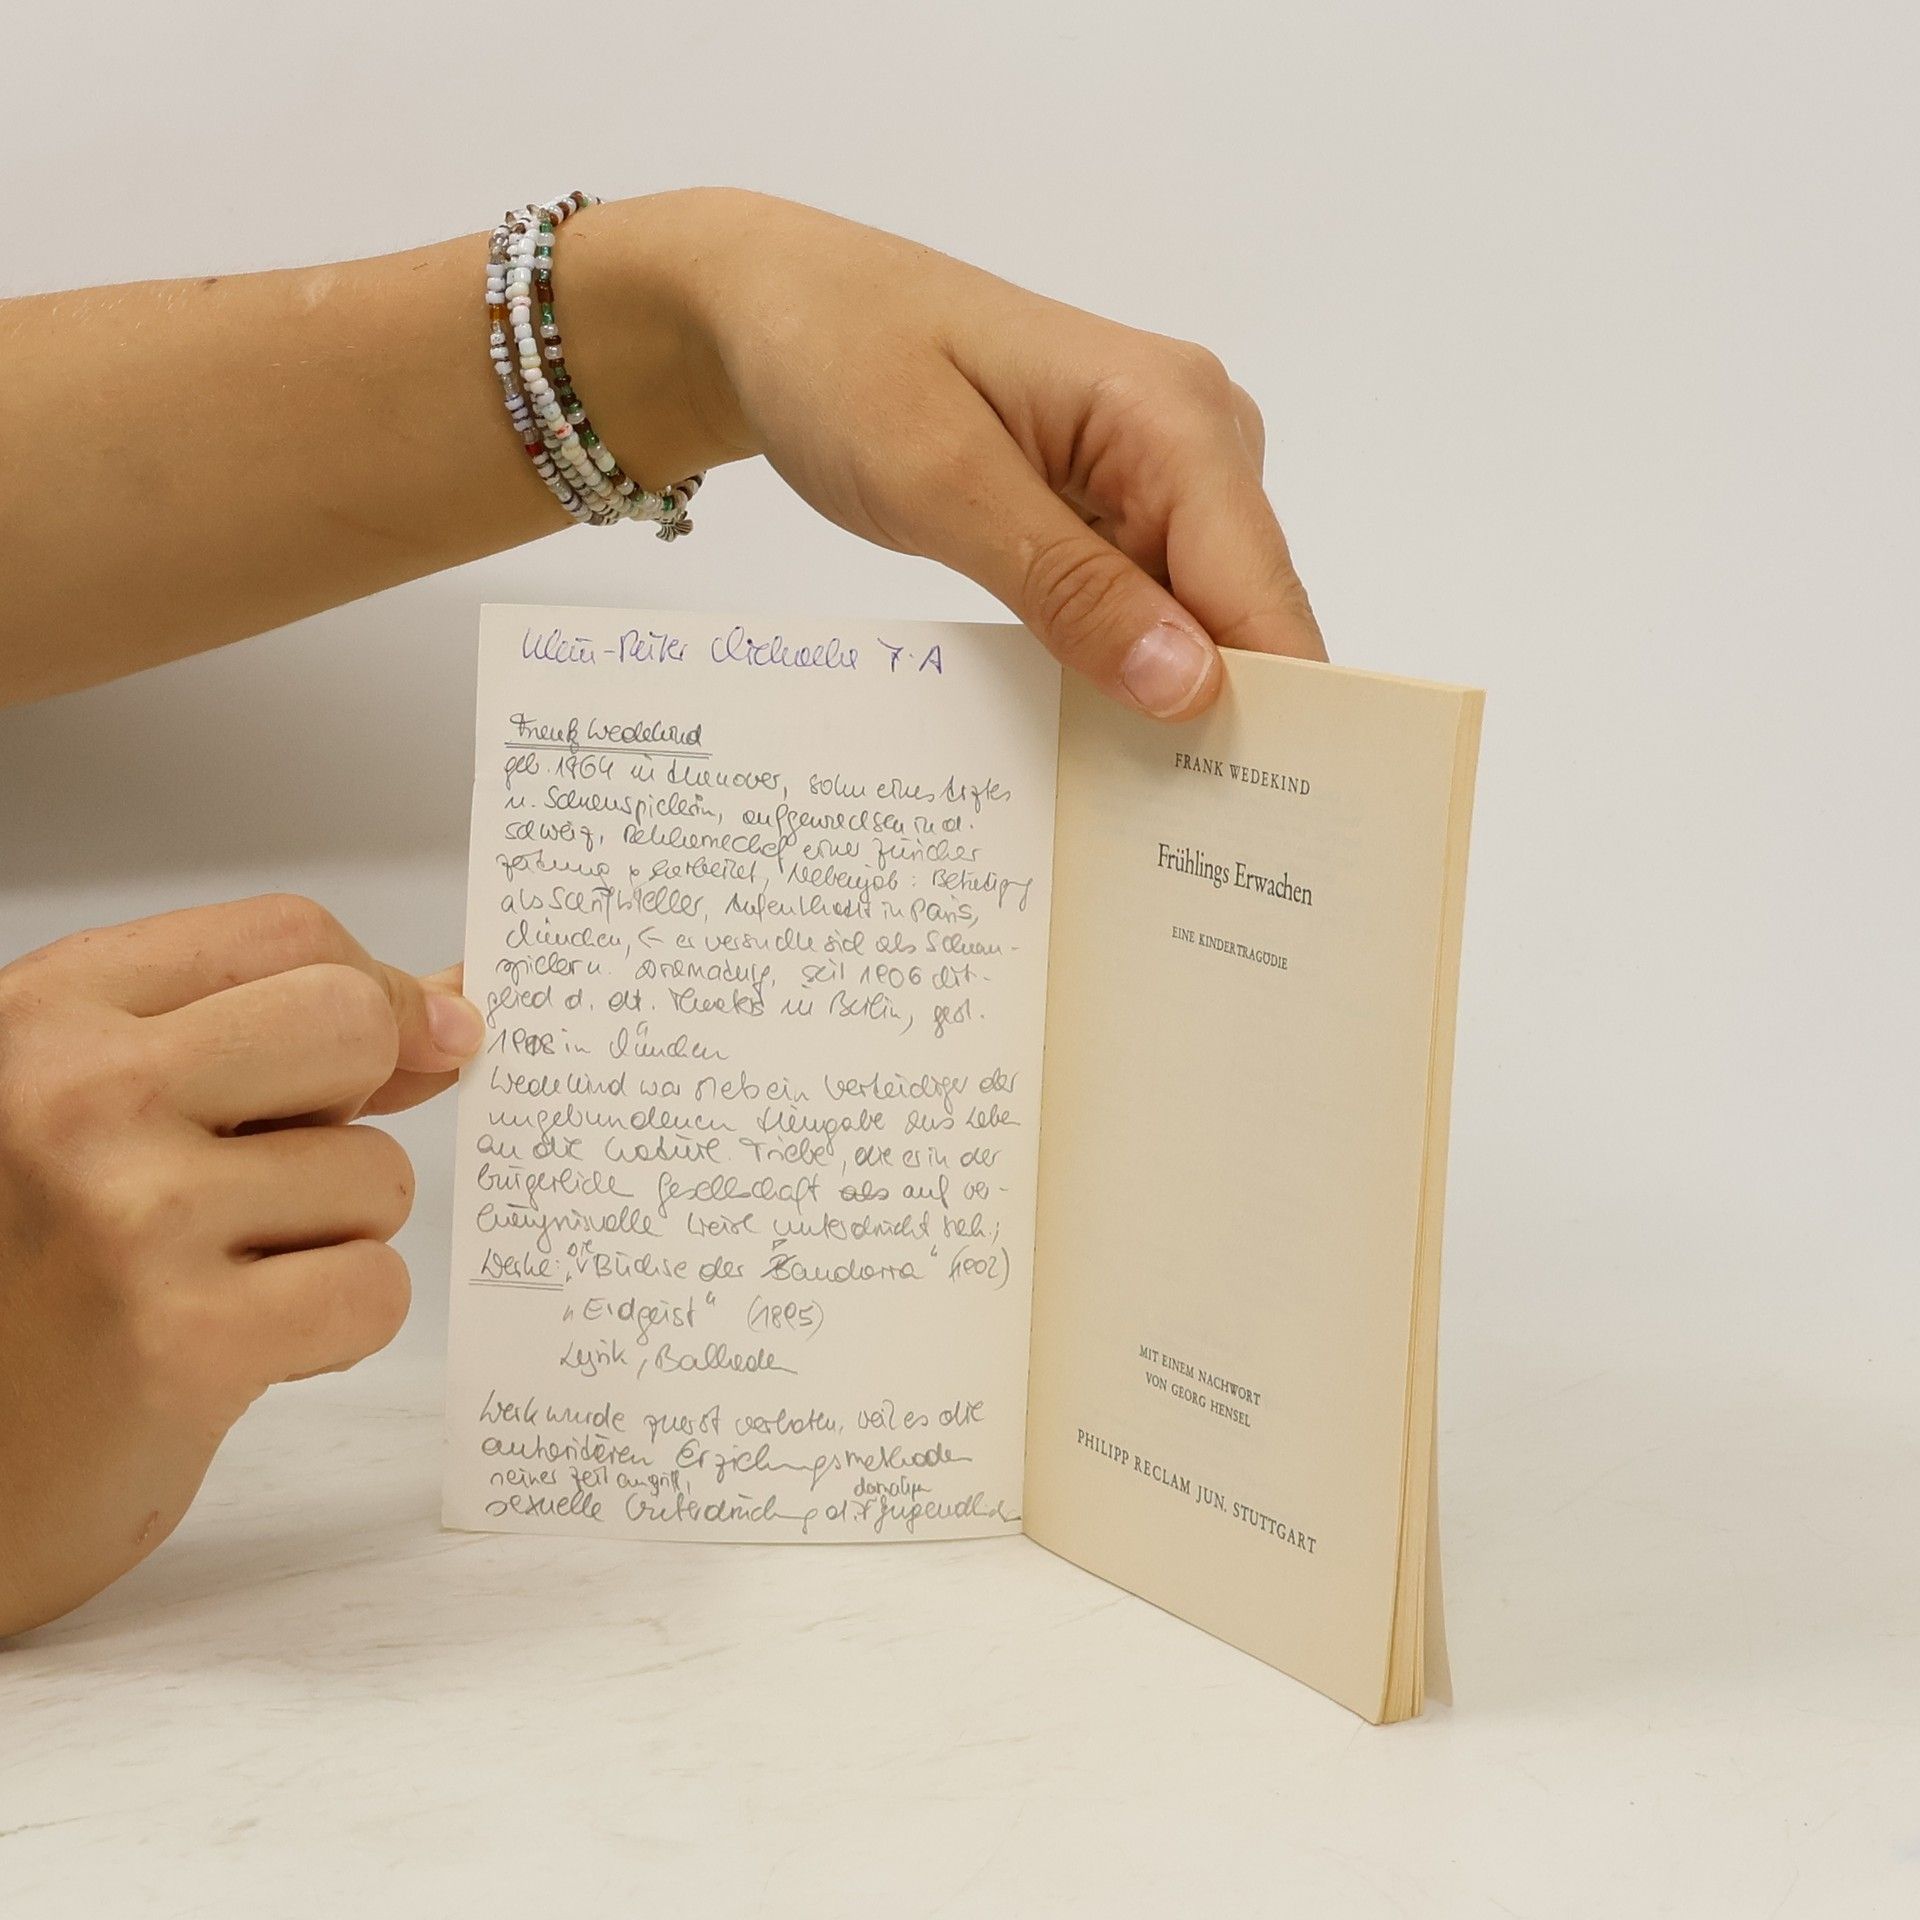 Klein-Reiter Michaela 7.A
Frank Wedekind
geb. 1864 in Hannover, Sohn eines Arztes
u. Schauspielerin, aufgewachsen in d.
Schweiz, Reklamechef einer Züricher
Zeitung gearbeitet, Nebenjob: Betätigung
als Schriftsteller, Aufenthalt in Paris,
München, ← er versuchte sich als Schau-
spieler u. Dramaturg, seit 1906 Mit-
glied d. dt. Theaters in Berlin, gest.
1918 in München
Wedekind war stets ein Verteidiger der
ungebundenen Hingabe ans Leben
an die natürl. Triebe, die er in der
bürgerliche Gesellschaft als auf ver-
hängnisvolle Weise unterdrückt sah;
Werke: "Die Büchse der Pandorra" (1902)
"Erdgeist" (1895)
Lyrik, Balladen
Werk wurde zuerst verboten, weil es die
autoritären Erziehungsmethoden
seiner Zeit angriff,
sexuelle Unterdrückung d. damaligen Jugendlichen
FRANK WEDEKIND
Frühlings Erwachen
EINE KINDERTRAGÖDIE
MIT EINEM NACHWORT
VON GEORG HENSEL
PHILIPP RECLAM JUN. STUTTGART